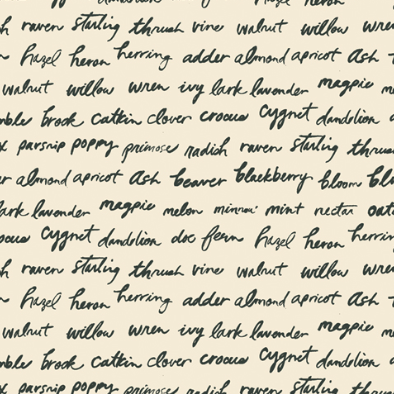 dandelion hazel heron
raven starling thrush vine walnut willow wren
hazel heron herring adder almond apricot ash
walnut willow wren ivy lark lavender magpie
brook catkin clover crocus cygnet dandelion
parsnip poppy primrose radish raven starling thrush
almond apricot ash beaver blackberry bloom
lark lavender magpie melon minnow mint nectar
cygnet dandelion doe fern hazel heron herring
raven starling thrush vine walnut willow wren
hazel heron herring adder almond apricot ash
walnut willow wren ivy lark lavender magpie
brook catkin clover crocus cygnet dandelion
parsnip poppy primrose radish raven starling thrush